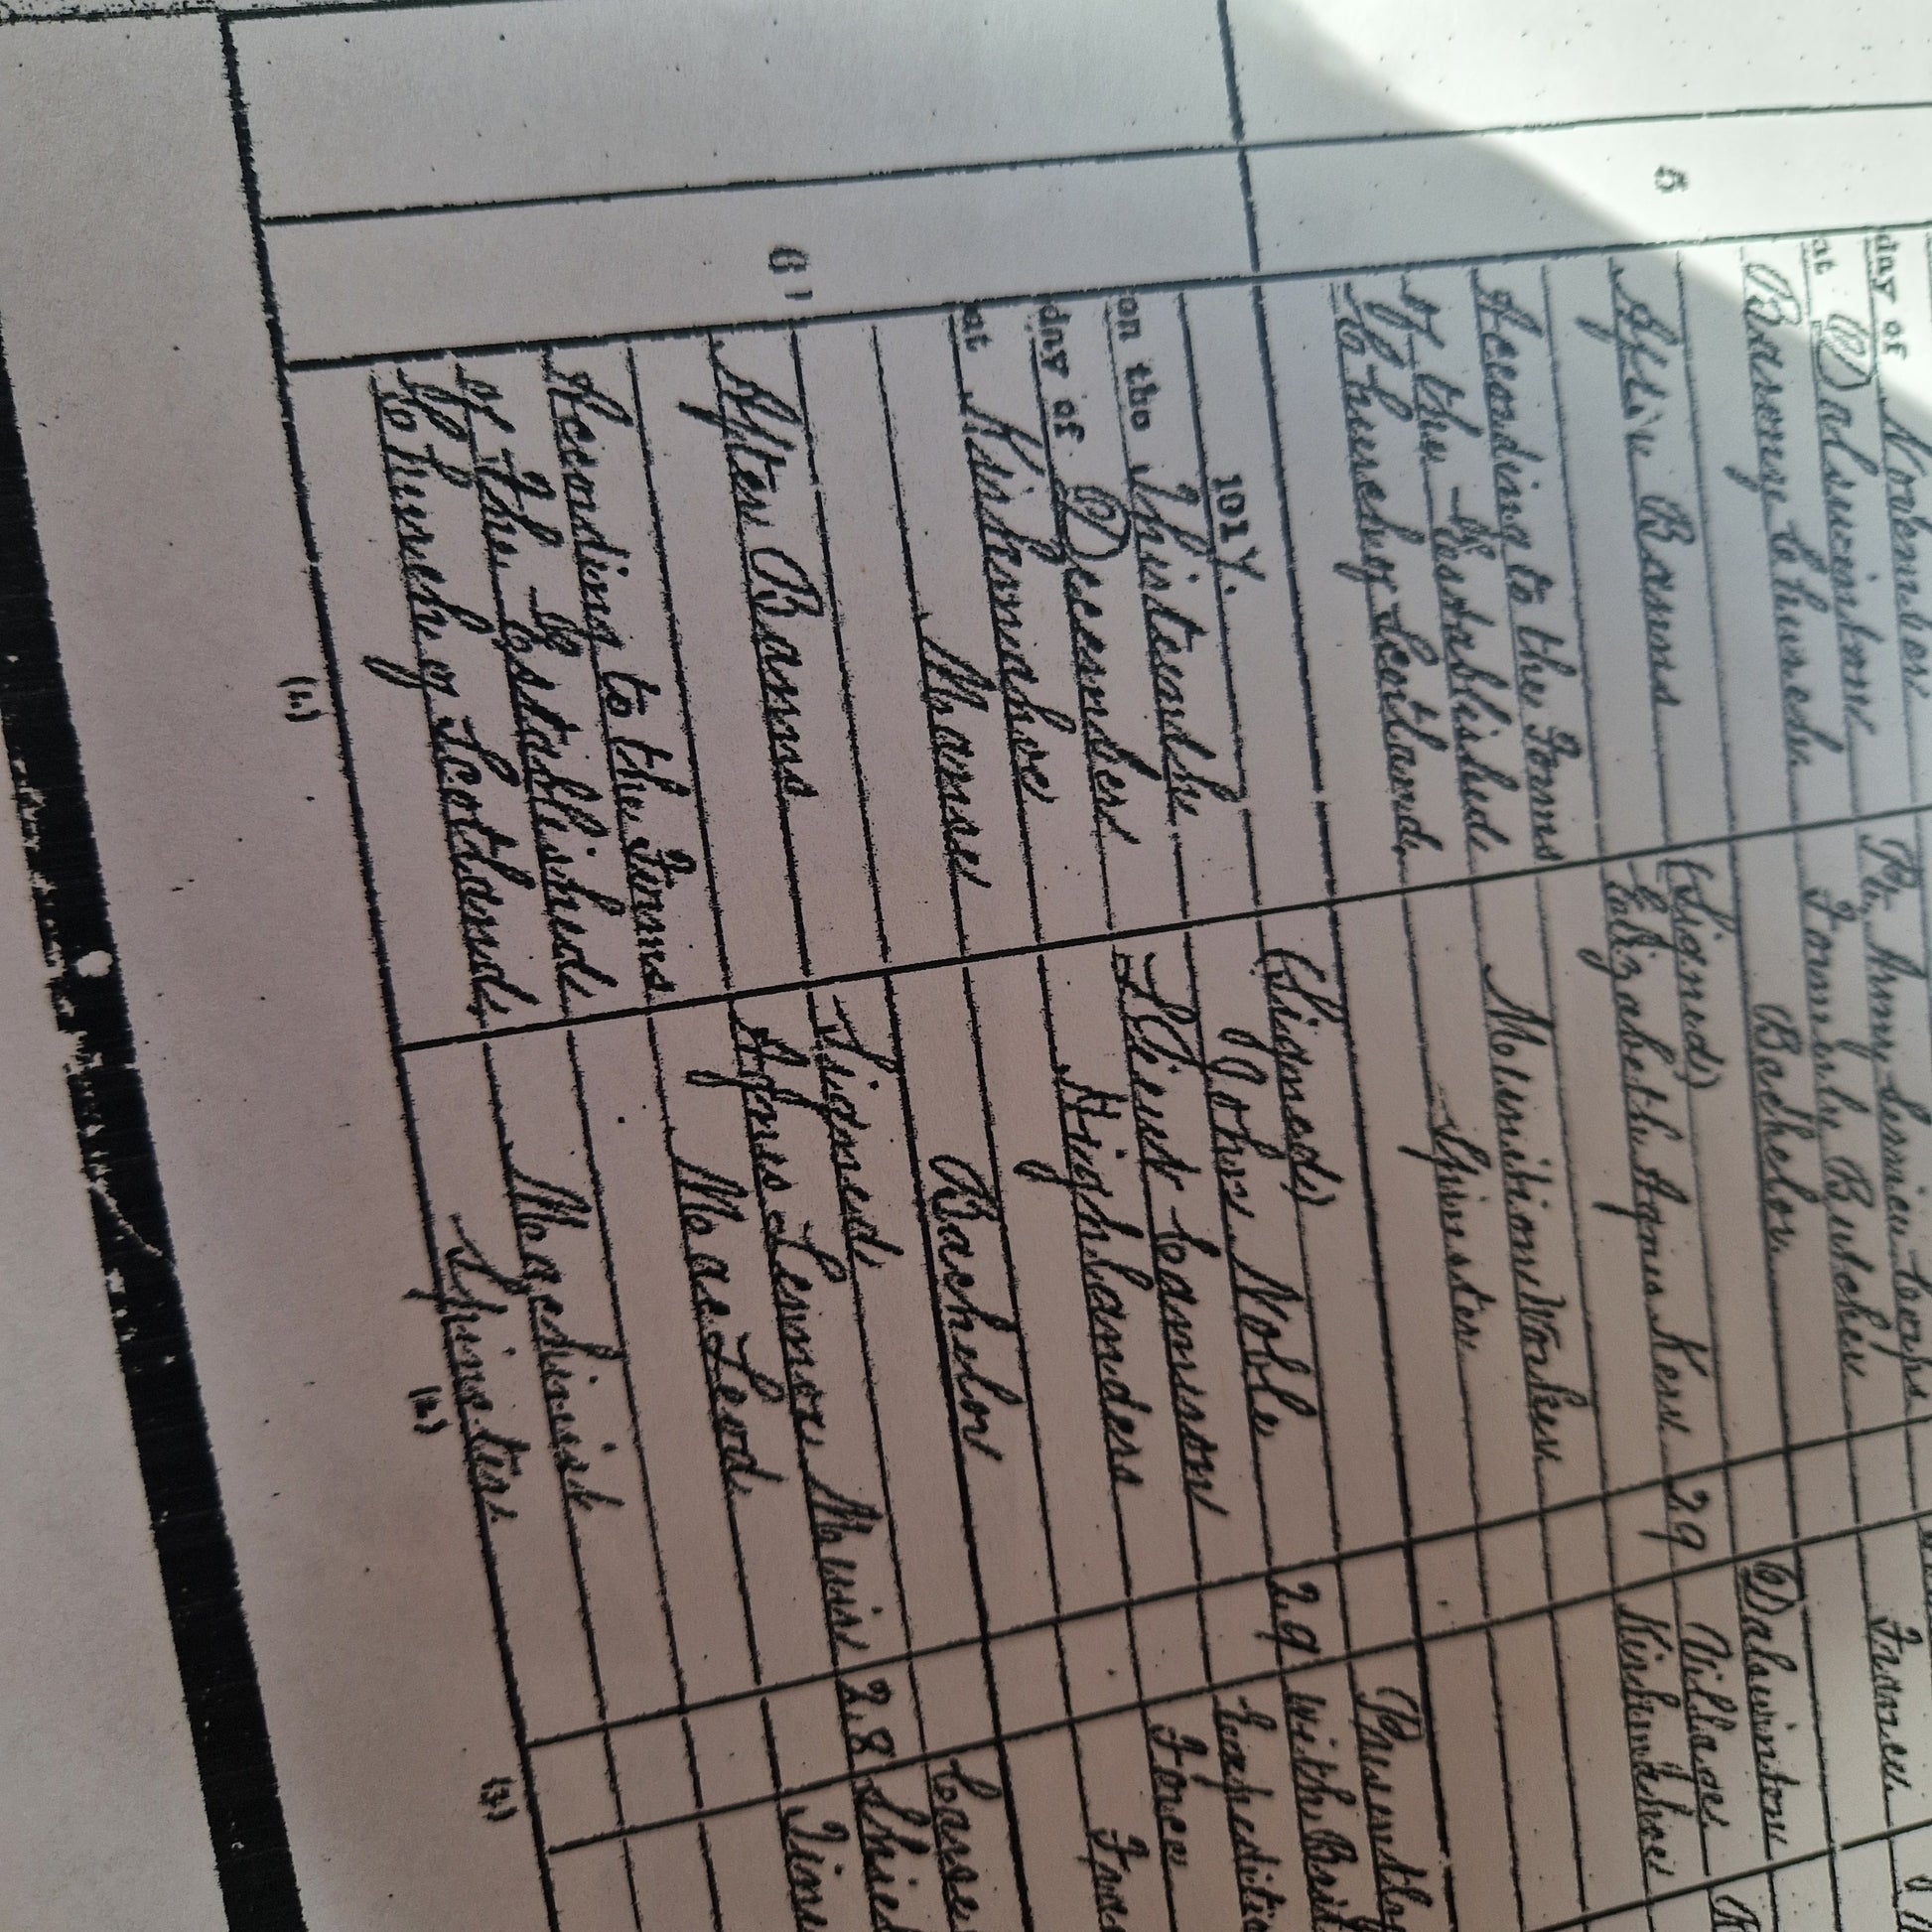 day of November
at Dalswinton
Barony Church
After Banns
According to the Forms
of the Established
Church of Scotland
5
Pte. Army Service Corps
Formerly Butcher
Bachelor
(Signed)
Elizabeth Agnes Kerr
Munition Worker
Spinster
29
France
Dalswinton
Village
Kirkmahoe
6
191 7.
on the Thirteenth
day of December
at Kirkmahoe
Manse
After Banns
According to the Forms
of the Established
Church of Scotland
(Signed)
John Noble
Lieut Cameron
Highlanders
Bachelor
Signed
Agnes Lennox Muir
MacLeod
Machinist
Spinster
29
28
Presently
with
Force
(1.)
(2.)
(3.)